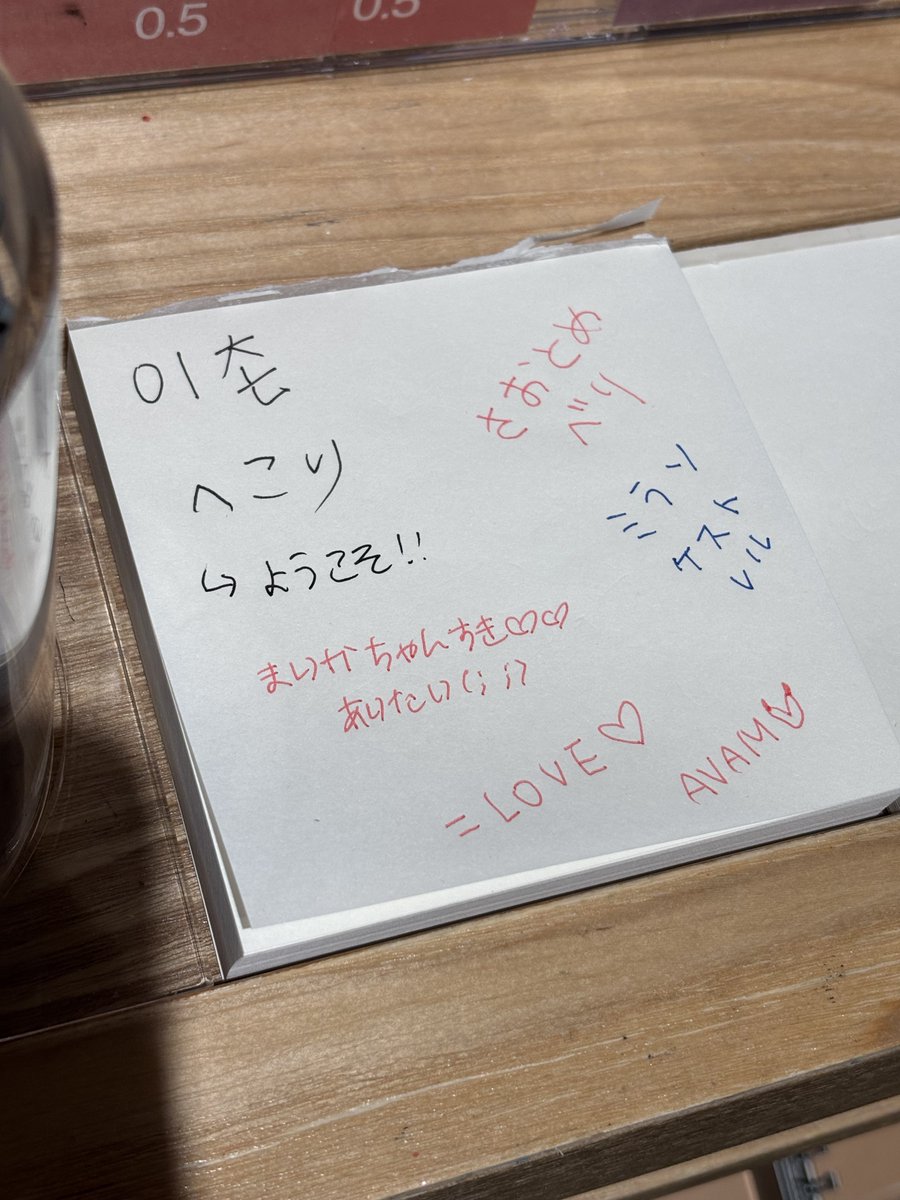 0.5
0.5
さおとめ
べり
へこり
ミラン
ケスト
レル
↪ようこそ!!
まいかちゃんすき♡♡
あいたい(; ;)
=LOVE♡
AVAM♡